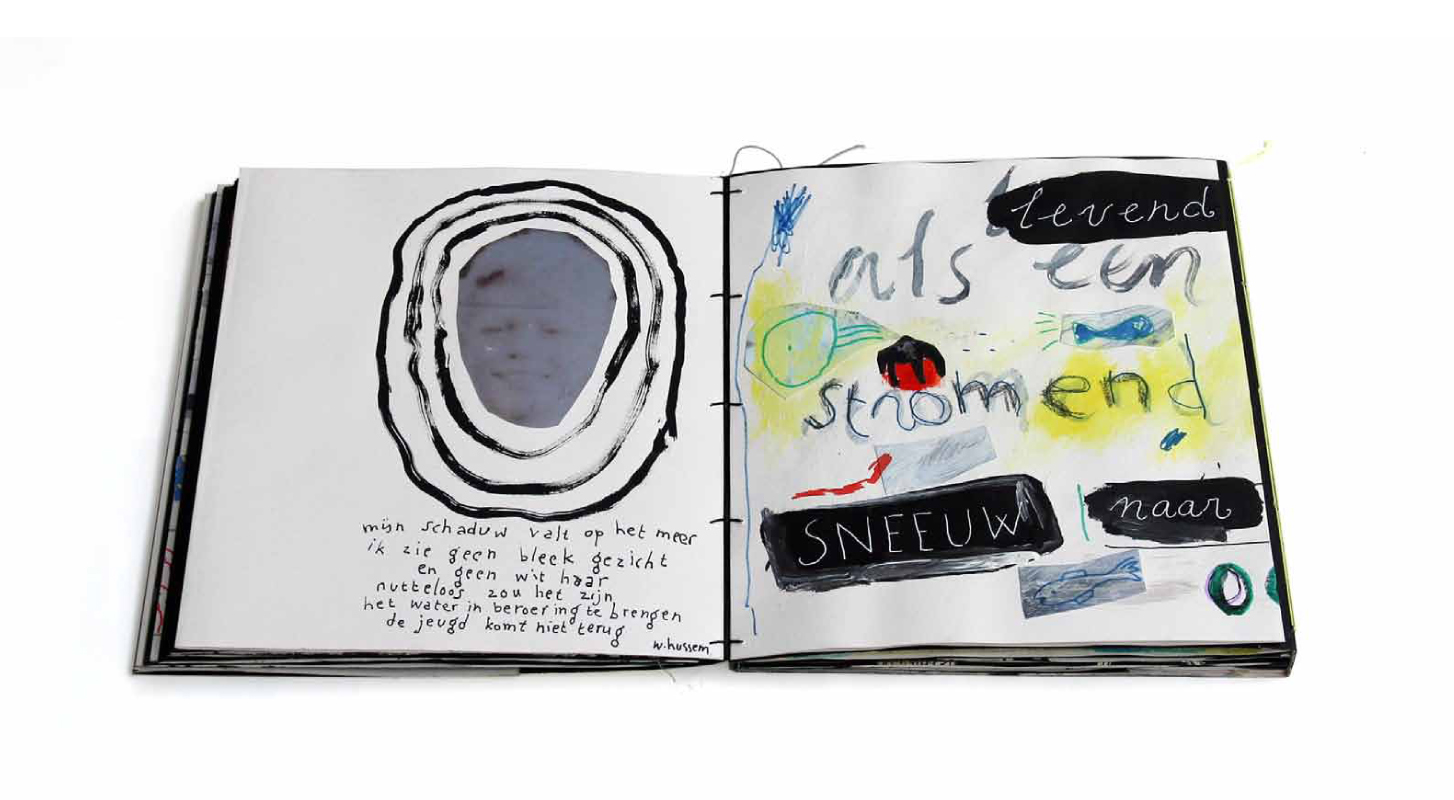 mijn schaduw valt op het meer
ik zie geen bleek gezicht
en geen wit haar
nutteloos zou het zijn
het water in beroering te brengen
de jeugd komt niet terug
w. hussem
levend
als een
stromend
SNEEUW naar